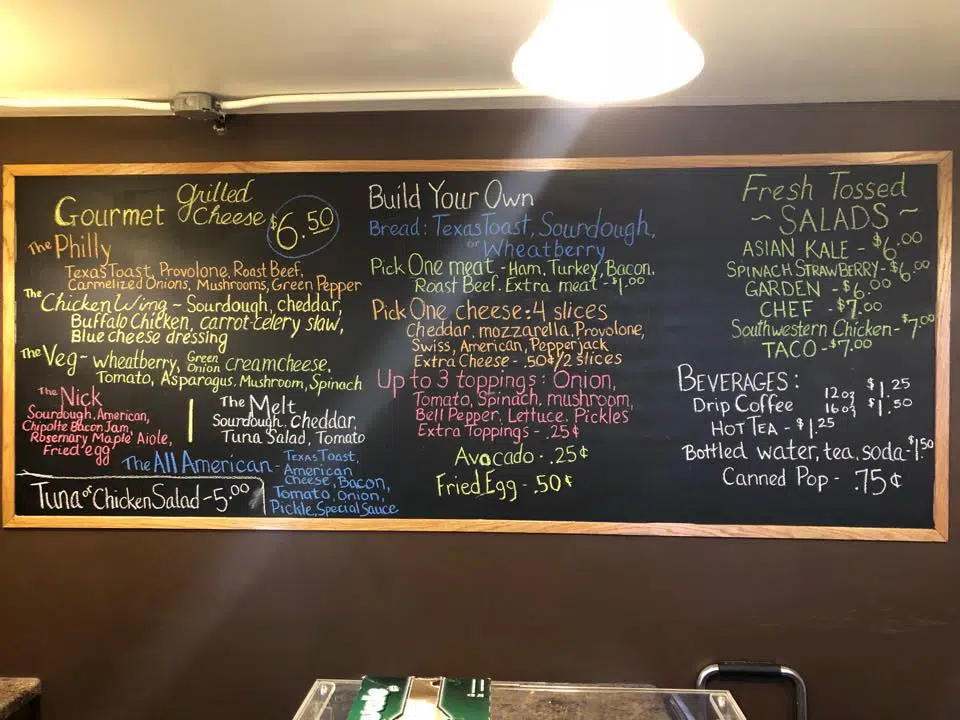 Gourmet Grilled Cheese $6.50
The Philly
Texas Toast, Provolone, Roast Beef,
Carmelized Onions, Mushrooms, Green Pepper
The Chicken Wing ~ Sourdough, cheddar,
Buffalo Chicken, carrot-celery slaw,
Blue cheese dressing
The Veg ~ wheatberry, Green Onion creamcheese,
Tomato, Asparagus, Mushroom, Spinach
The Nick
Sourdough, American,
Chipolte Bacon Jam,
Rosemary Maple Aiole,
Fried egg
The Melt
Sourdough, Cheddar,
Tuna Salad, Tomato
The All American - Texas Toast,
American
Cheese, Bacon,
Tomato, Onion,
Pickle, Special Sauce
Tuna or Chicken Salad - 5.00
Build Your Own
Bread: Texas Toast, Sourdough,
or Wheatberry
Pick One meat - Ham, Turkey, Bacon.
Roast Beef. Extra meat - $1.00
Pick One cheese: 4 slices
Cheddar, mozzarella, Provolone,
Swiss, American, Pepperjack
Extra Cheese - .50¢/2 slices
Up to 3 toppings: Onion,
Tomato, Spinach, mushroom,
Bell Pepper, Lettuce, Pickles
Extra Toppings - .25¢
Avocado - .25¢
Fried Egg - .50¢
Fresh Tossed
~ SALADS ~
ASIAN KALE - $6.00
SPINACH STRAWBERRY - $6.00
GARDEN - $6.00
CHEF - $7.00
Southwestern Chicken - $7.00
TACO - $7.00
BEVERAGES:
Drip Coffee 12oz $1.25
16oz $1.50
HOT TEA - $1.25
Bottled water, tea, soda - $1.50
Canned Pop - .75¢